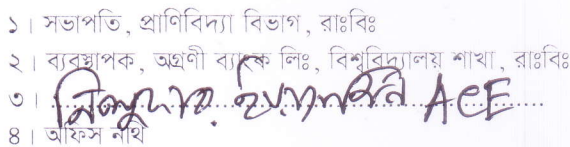 ১। সভাপতি, প্রাণিবিদ্যা বিভাগ, রাঃবিঃ
২। ব্যবস্থাপক, অগ্রণী ব্যাংক লিঃ, বিশ্ববিদ্যালয় শাখা, রাঃবিঃ
৩। ACE
৪। অফিস নথি